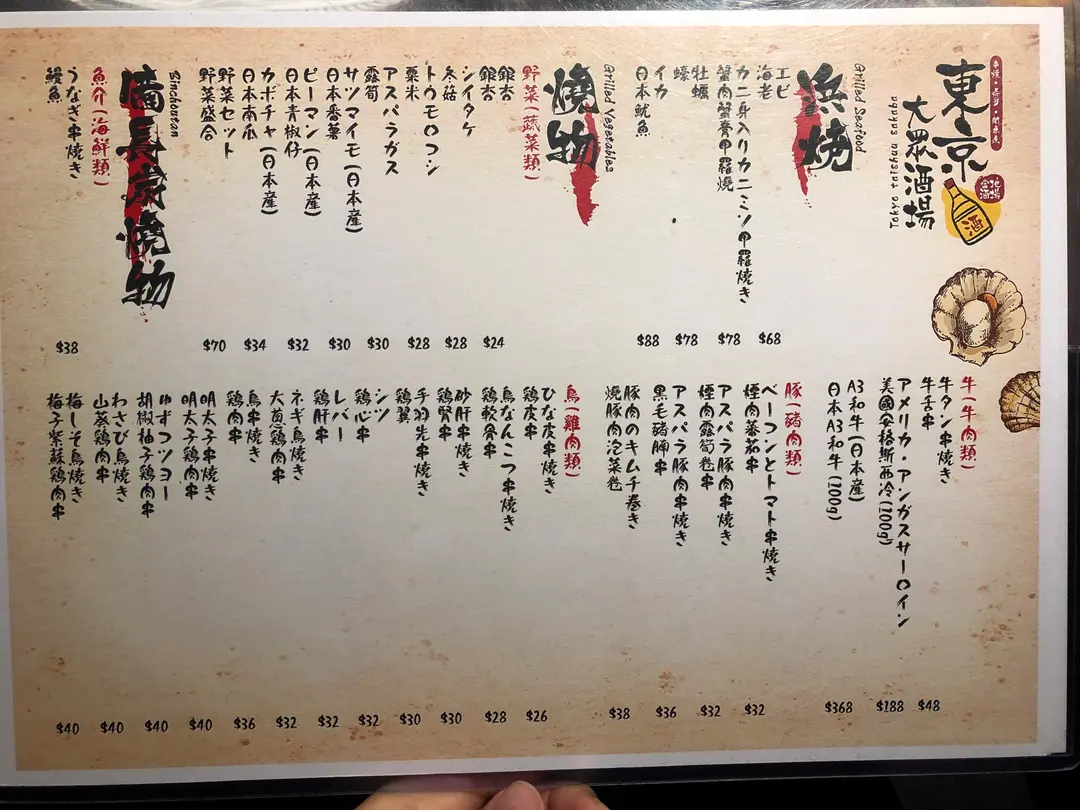 串燒・壽司・關東煮
東京
大眾酒場
Tokyo taisyu sakaba
酒
Grilled Seafood
浜燒
エビ
海老
$68
カニ身入りカニミソ甲羅焼き
蟹肉蟹膏甲羅燒
$78
牡蠣
蠔
$78
イカ
日本魷魚
$88
Grilled Vegetables
燒物
野菜(蔬菜類)
銀杏
銀杏
$24
シイタケ
冬菇
$28
トウモロコシ
粟米
$28
アスパラガス
露筍
$30
サツマイモ(日本産)
日本番薯
$30
ピーマン(日本産)
日本青椒仔
$32
カボチャ(日本産)
日本南瓜
$34
野菜セット
野菜盛合
$70
Binchoutan
備長炭燒物
魚介(海鮮類)
うなぎ串焼き
鰻魚
$38
牛(牛肉類)
牛タン串焼き
牛舌串
$48
アメリカ・アンガスサーロイン
美國安格斯西冷(100g)
$188
A3和牛(日本産)
日本A3和牛(100g)
$368
豚(豬肉類)
ベーコンとトマト串焼き
煙肉蕃茄串
$32
アスパラ豚肉串焼き
煙肉露筍卷串
$32
アスパラ豚肉串焼き
黒毛豬腩串
$36
豚肉のキムチ巻き
燒豚肉泡菜卷
$38
鳥(雞肉類)
ひな皮串焼き
鶏皮串
$26
鳥なんこつ串焼き
鶏軟骨串
$28
砂肝串焼き
鶏腎串
$30
手羽先串焼き
鶏翼
$30
シツ
鶏心串
$32
レバー
鶏肝串
$32
ネギま鳥焼き
大蔥鶏肉串
$32
鳥串焼き
鶏肉串
$36
明太子串焼き
明太子鶏肉串
$40
ゆずコツヨー
胡椒柚子鶏肉串
$40
わさび鳥焼き
山葵鶏肉串
$40
梅しそ鳥焼き
梅子紫蘇鶏肉串
$40